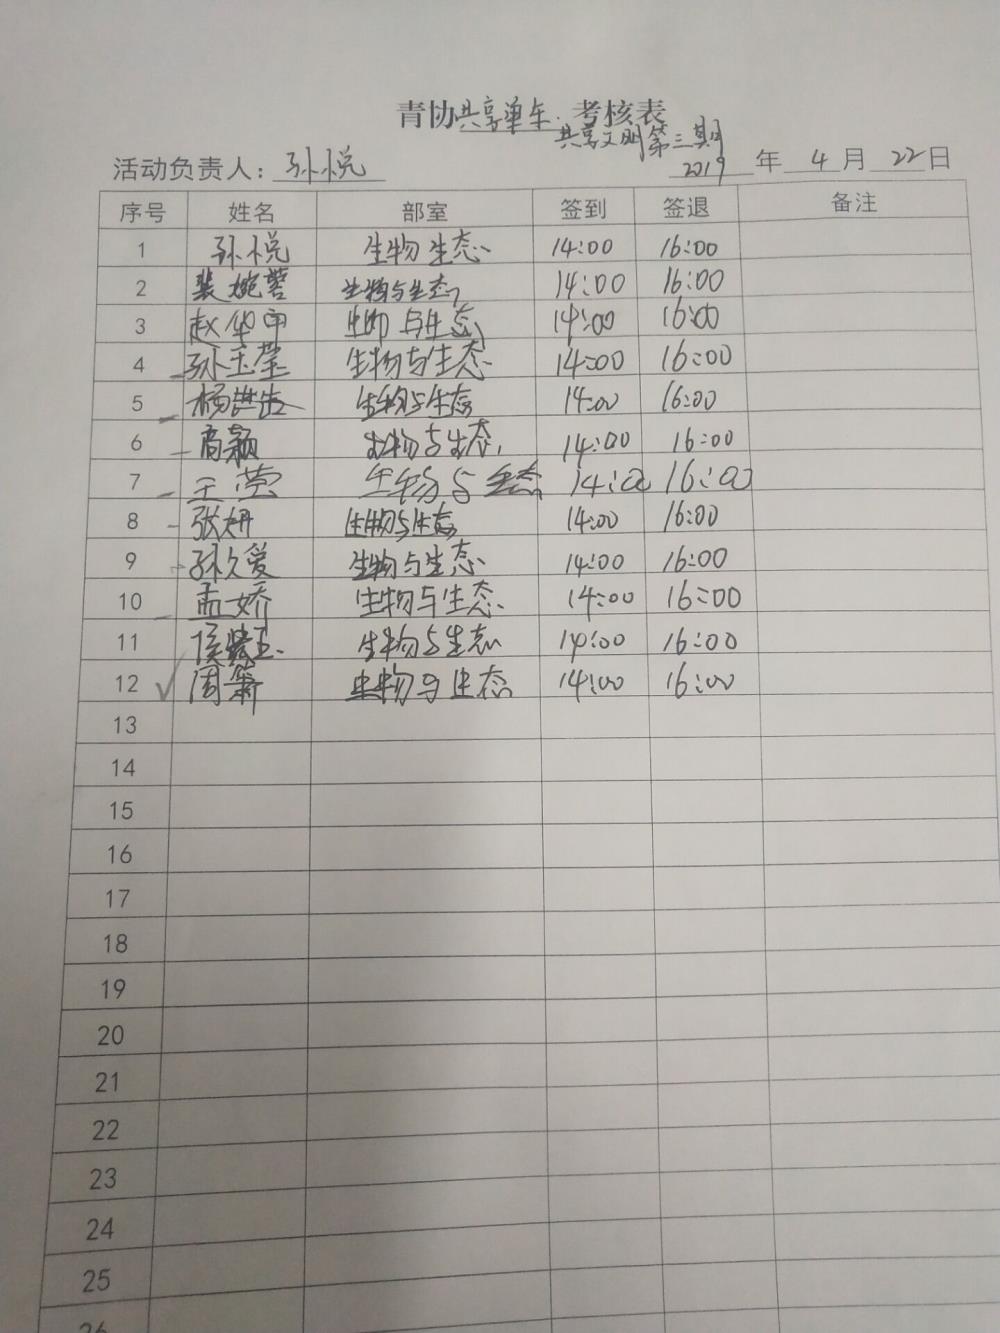 青协共享单车考核表
共享文明第三期
活动负责人：孙悦 2019年4月22日
序号 姓名 部室 签到 签退 备注
1 孙悦 生物生态 14:00 16:00
2 裴婉蓉 生物与生态 14:00 16:00
3 赵华甲 生物与生态 14:00 16:00
4 孙玉莹 生物与生态 14:00 16:00
5 杨 生物与生态 14:00 16:00
6 高颖 生物与生态 14:00 16:00
7 王莹 生物与生态 14:00 16:00
8 张妍 生物与生态 14:00 16:00
9 孙久爱 生物与生态 14:00 16:00
10 孟娇 生物与生态 14:00 16:00
11 侯 玉 生物与生态 14:00 16:00
12 周 生物与生态 14:00 16:00
13
14
15
16
17
18
19
20
21
22
23
24
25
26